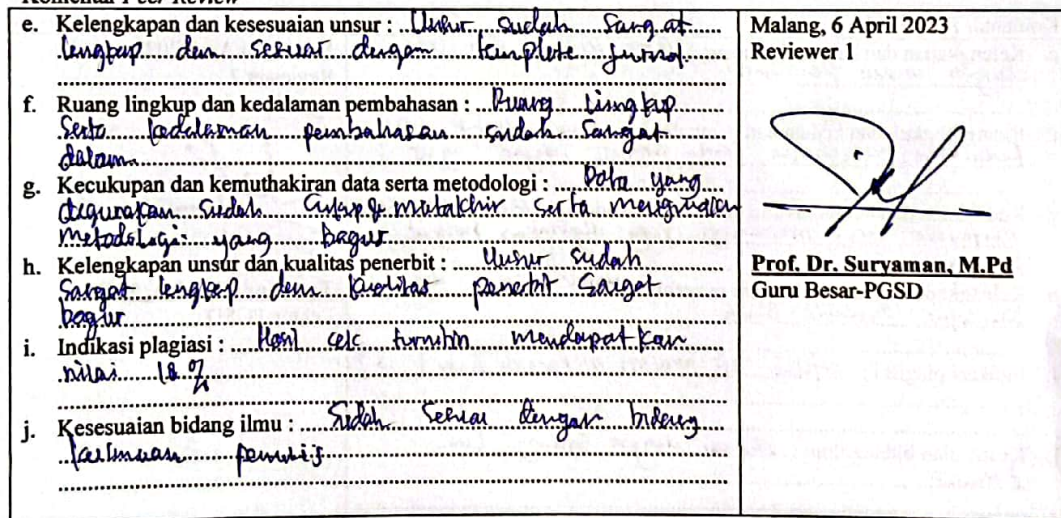 Komentar Peer Review
e. Kelengkapan dan kesesuaian unsur : Unsur sudah sangat
lengkap dan sesuai dengan template jurnal.
f. Ruang lingkup dan kedalaman pembahasan : Ruang lingkup
serta kedalaman pembahasan sudah sangat
dalam
g. Kecukupan dan kemuthakiran data serta metodologi : Data yang
digunakan sudah cukup & mutakhir serta menggunakan
metodologi yang bagus
h. Kelengkapan unsur dan kualitas penerbit : Unsur sudah
sangat lengkap dan kualitas penerbit sangat
bagus
i. Indikasi plagiasi : Hasil cek turnitin mendapatkan
nilai 18 %
j. Kesesuaian bidang ilmu : Sudah sesuai dengan bidang
keilmuan penulis
Malang, 6 April 2023
Reviewer 1
Prof. Dr. Suryaman, M.Pd
Guru Besar-PGSD